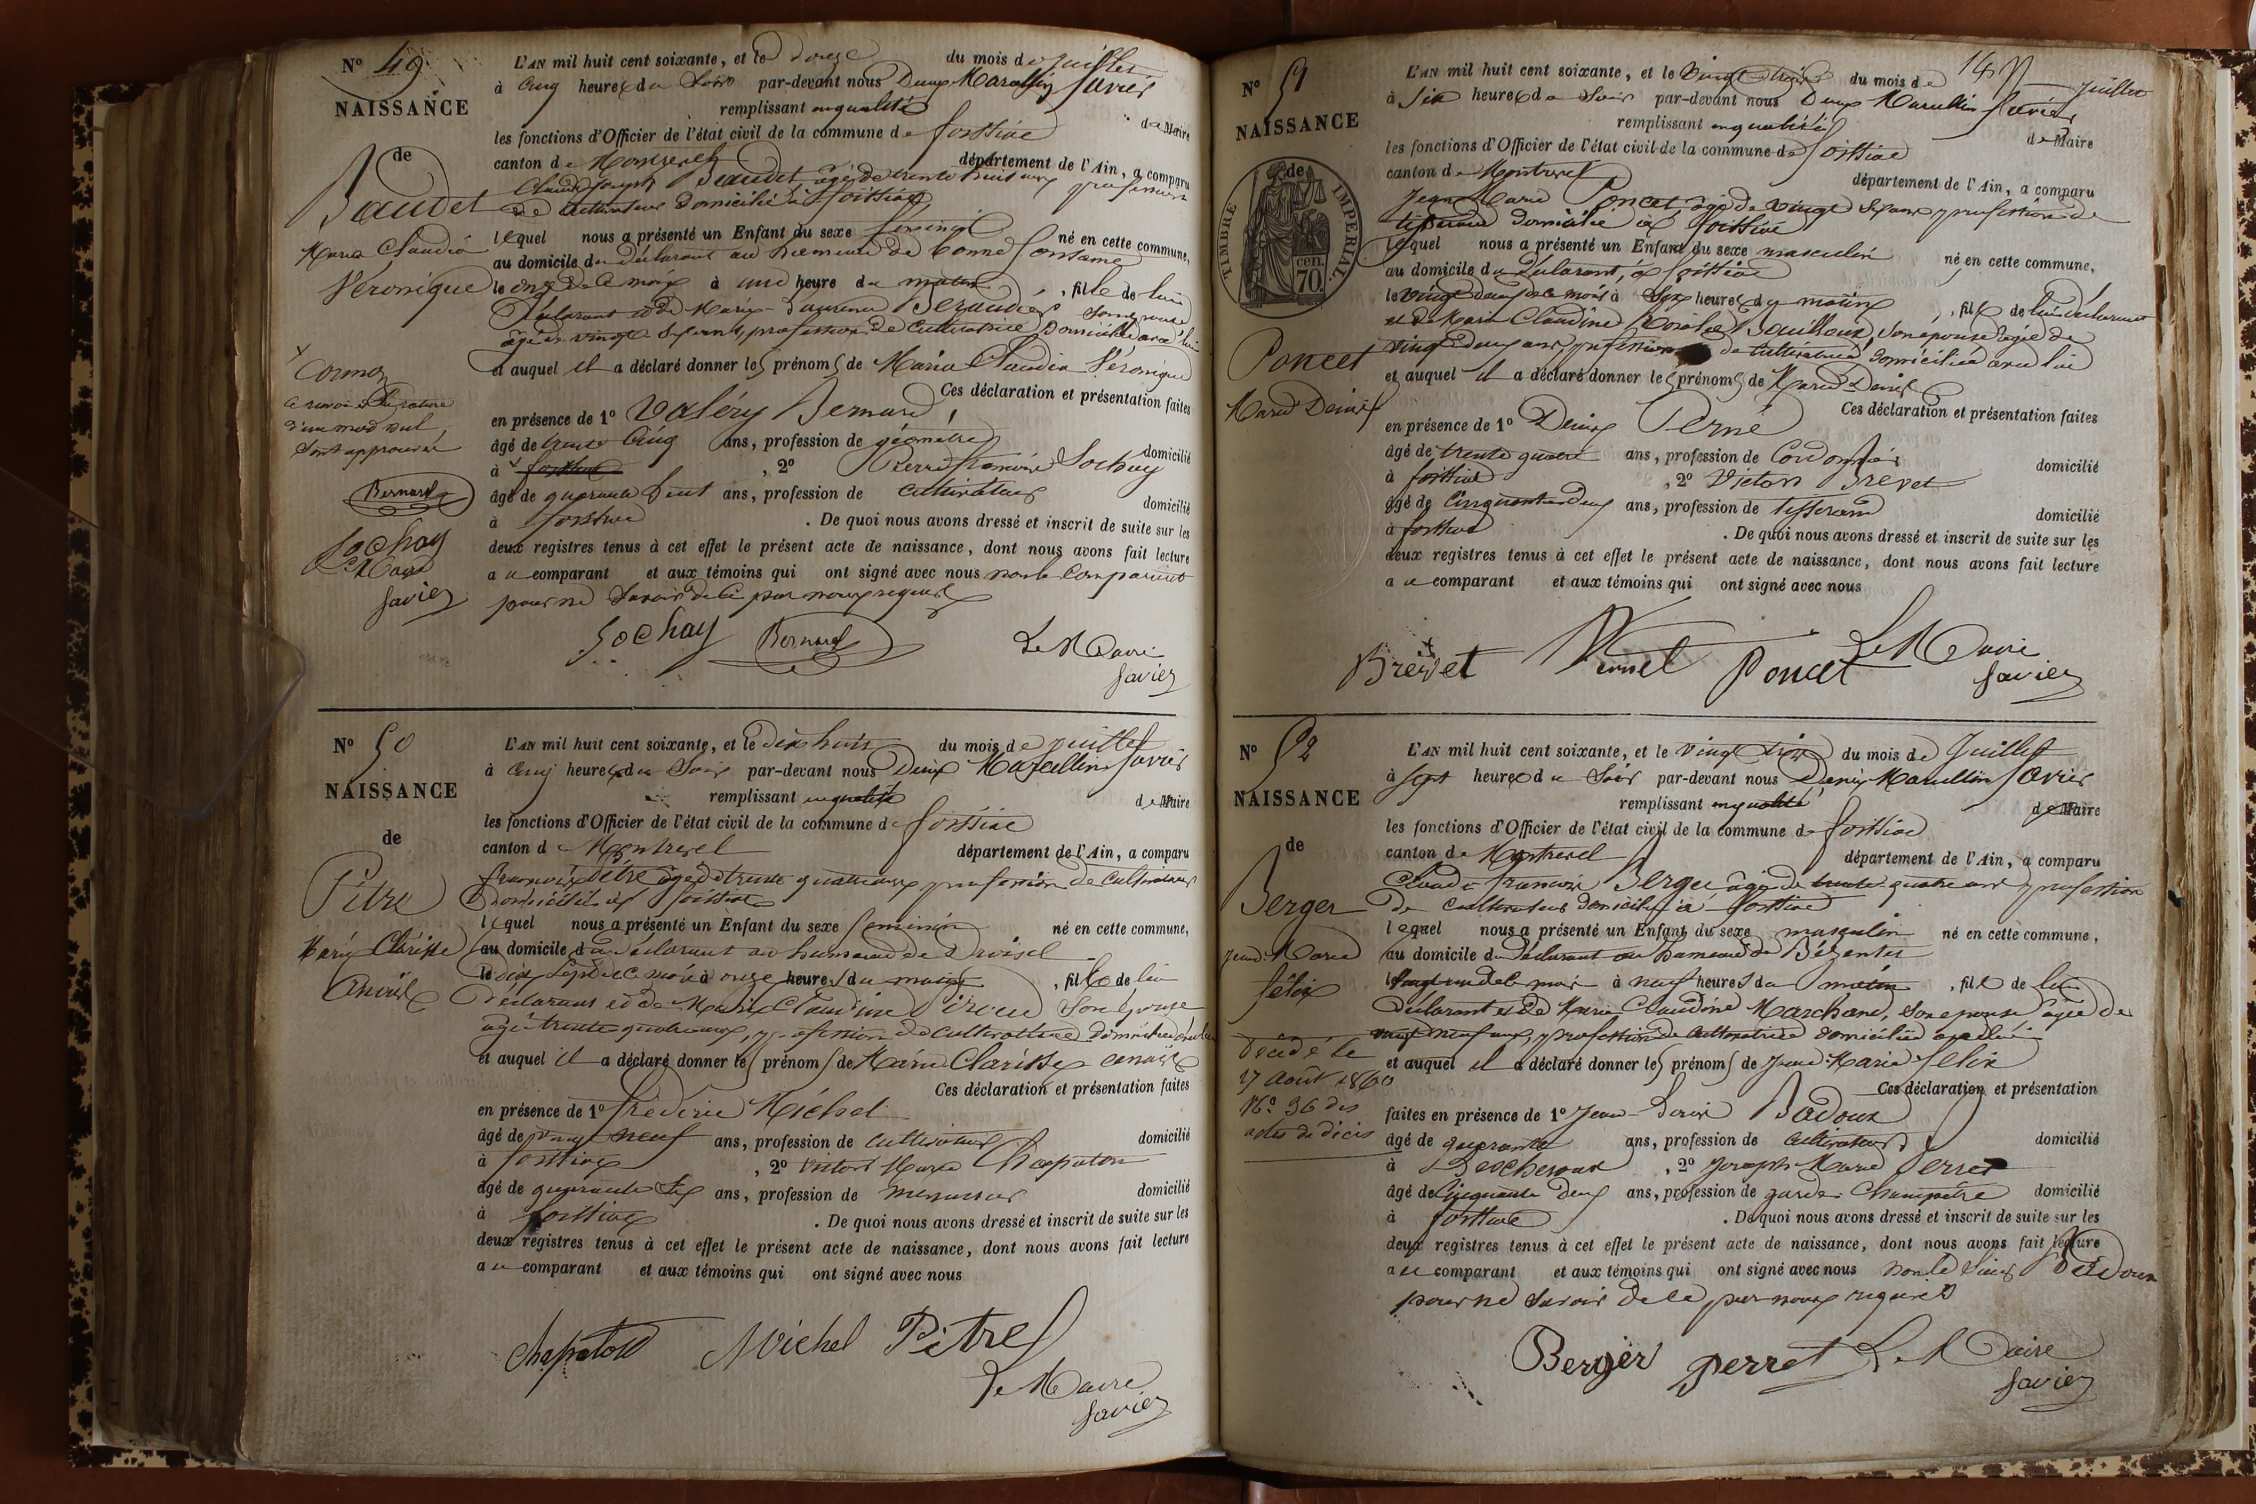 N° 49
NAISSANCE
de
Baudet
Maria Claudia
Véronique
x Cormoz
ce renvoi et la rature
d'un mot nul
sont approuvés
Bernard
Sochay
Le Maire
Savier
L'AN mil huit cent soixante, et le douze du mois de juillet
à cinq heures du soir par-devant nous Denis Marcellin Savier
remplissant en qualité de Maire
les fonctions d'Officier de l'état civil de la commune de foissiat
canton de Montrevel département de l'Ain, a comparu
Claude Joseph Baudet, âgé de trente huit ans profession
de cultivateur domicilié à foissiat
lequel nous a présenté un Enfant du sexe féminin né en cette commune,
au domicile du déclarant au hameau de bonne fontaine
le onze de ce mois à une heure du matin, fille de lui
Déclarant et de Marie Laurence Beraudier son épouse
âgée de vingt sept ans, profession de cultivatrice, Domiciliée avec lui
et auquel il a déclaré donner les prénoms de Maria Claudia Véronique
Ces déclaration et présentation faites
en présence de 1° Valéry Bernard,
âgé de trente cinq ans, profession de géomètre domicilié
à x foissiat, 2° Pierre Sochay
âgé de quarante huit ans, profession de cultivateur domicilié
à foissiat. De quoi nous avons dressé et inscrit de suite sur les
deux registres tenus à cet effet le présent acte de naissance, dont nous avons fait lecture
au comparant et aux témoins qui ont signé avec nous non le comparant
pour ne savoir de ce par nous requis
Sochay Bernard Le Maire
Savier
N° 50
NAISSANCE
de
Pitre
Marie Clarisse
Anaïs
L'AN mil huit cent soixante, et le dix huit du mois de juillet
à cinq heures du soir par-devant nous Denis Marcellin Savier
remplissant en qualité de Maire
les fonctions d'Officier de l'état civil de la commune de foissiat
canton de Montrevel département de l'Ain, a comparu
françois Pitre âgé de trente quatre ans, profession de cultivateur
Domicilié à foissiat
lequel nous a présenté un Enfant du sexe féminin né en cette commune,
au domicile du déclarant au hameau de
le dix sept de ce mois à onze heures du matin, fille de lui
Déclarant et de Marie Claudine Piroud son épouse
âgée trente quatre ans, profession de cultivatrice Domiciliée avec lui
et auquel il a déclaré donner les prénoms de Marie Clarisse anaïs
Ces déclaration et présentation faites
en présence de 1° frédéric Michel
âgé de vingt neuf ans, profession de cultivateur domicilié
à foissiat, 2° Victor Marie Chapaton
âgé de quarante six ans, profession de menuisier domicilié
à foissiat. De quoi nous avons dressé et inscrit de suite sur les
deux registres tenus à cet effet le présent acte de naissance, dont nous avons fait lecture
au comparant et aux témoins qui ont signé avec nous
Chapaton Michel Pitre
Le Maire
Savier
N° 51
NAISSANCE
de
TIMBRE IMPERIAL
70 cen.
Poncet
Marie Denis
L'AN mil huit cent soixante, et le vingt trois du mois de juillet
à six heures du soir par-devant nous Denis Marcellin Savier
remplissant en qualité de Maire
les fonctions d'Officier de l'état civil de la commune de foissiat
canton de Montrevel département de l'Ain, a comparu
Jean Marie Poncet âgé de vingt sept ans profession de
tisserand domicilié à foissiat
lequel nous a présenté un Enfant du sexe masculin né en cette commune,
au domicile du Déclarant, à foissiat
le vingt deux de ce mois à six heures du matin, fils de lui déclarant
et de Marie Claudine Rosalie Bouilloux, son épouse âgée de
vingt deux ans, profession de cultivatrice, domiciliée avec lui
et auquel il a déclaré donner les prénoms de Marie Denis
Ces déclaration et présentation faites
en présence de 1° Denis
âgé de trente quatre ans, profession de Cordonnier domicilié
à foissiat, 2° Victor Brevet
âgé de cinquante deux ans, profession de tisserand domicilié
à foissiat. De quoi nous avons dressé et inscrit de suite sur les
deux registres tenus à cet effet le présent acte de naissance, dont nous avons fait lecture
au comparant et aux témoins qui ont signé avec nous
Brevet Poncet Le Maire
Savier
N° 52
NAISSANCE
de
Berger
Jean-Marie
félix
Décédé le
27 août 1860
N° 36 des
actes de décès
L'AN mil huit cent soixante, et le vingt trois du mois de Juillet
à sept heures du soir par-devant nous Denis Marcellin Savier
remplissant en qualité de Maire
les fonctions d'Officier de l'état civil de la commune de foissiat
canton de Montrevel département de l'Ain, a comparu
Claude françois Berger âgé de trente quatre ans profession
de cultivateur domicilié à foissiat
lequel nous a présenté un Enfant du sexe masculin né en cette commune,
au domicile du déclarant au hameau de Bézentet
le vingt un de ce mois à neuf heures du matin, fils de lui
déclarant et de Marie Claudine Marchand, son épouse âgée de
vingt neuf ans, profession de cultivatrice domiciliée avec lui
et auquel il a déclaré donner les prénoms de Jean-Marie félix
Ces déclaration et présentation
faites en présence de 1° Jean-Louis Badoux
âgé de quarante ans, profession de cultivateur domicilié
à Bescheroux, 2° Joseph Marie Perret
âgé de cinquante deux ans, profession de garde champêtre domicilié
à foissiat. De quoi nous avons dressé et inscrit de suite sur les
deux registres tenus à cet effet le présent acte de naissance, dont nous avons fait lecture
au comparant et aux témoins qui ont signé avec nous non le sieur Badoux
pour ne savoir de ce par nous requis
Berger Perret Le Maire
Savier